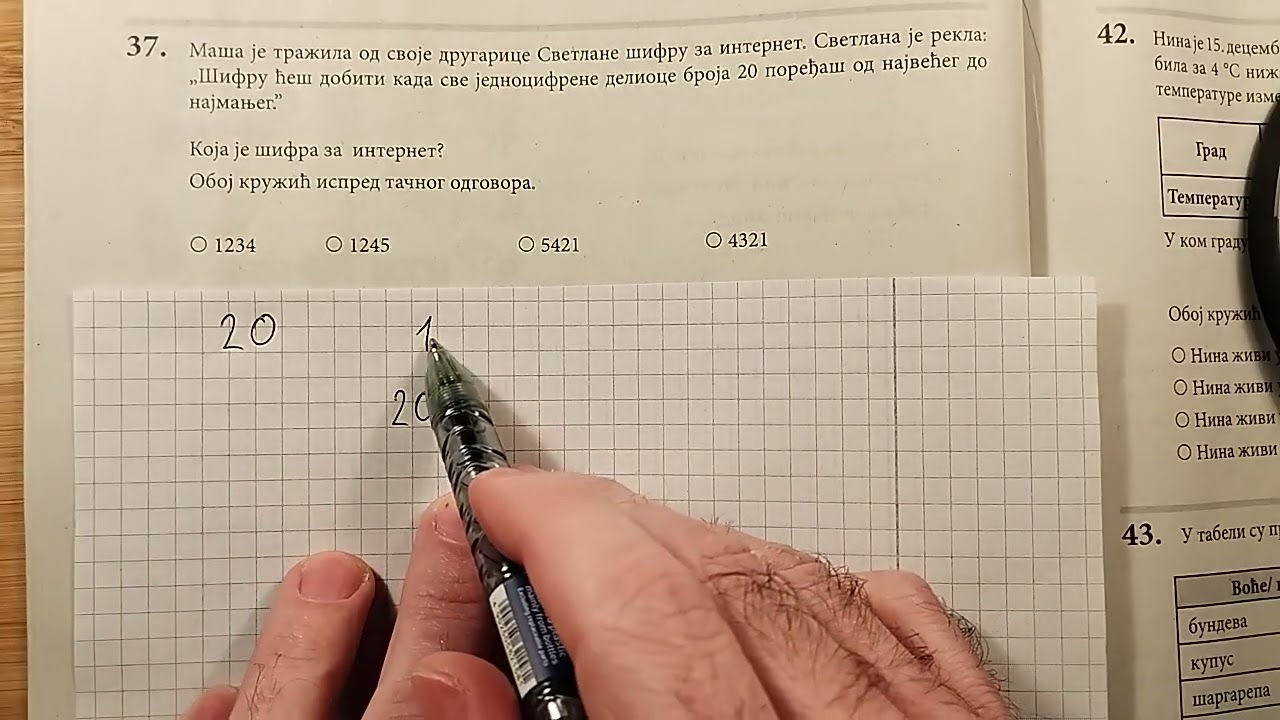 37. Маша је тражила од своје другарице Светлане шифру за интернет. Светлана је рекла:
„Шифру ћеш добити када све једноцифрене делиоце броја 20 поређаш од највећег до
најмањег.”
Која је шифра за интернет?
Обој кружић испред тачног одговора.
○ 1234 ○ 1245 ○ 5421 ○ 4321
20 1
20
mainly from bottles
42. Нина је 15. децемб
била за 4 °C ниж
температуре изме
Град
Температур
У ком граду
Обој кружић
○ Нина живи
○ Нина живи
○ Нина живи
○ Нина живи
43. У табели су п
Воће/
бундева
купус
шаргарепа